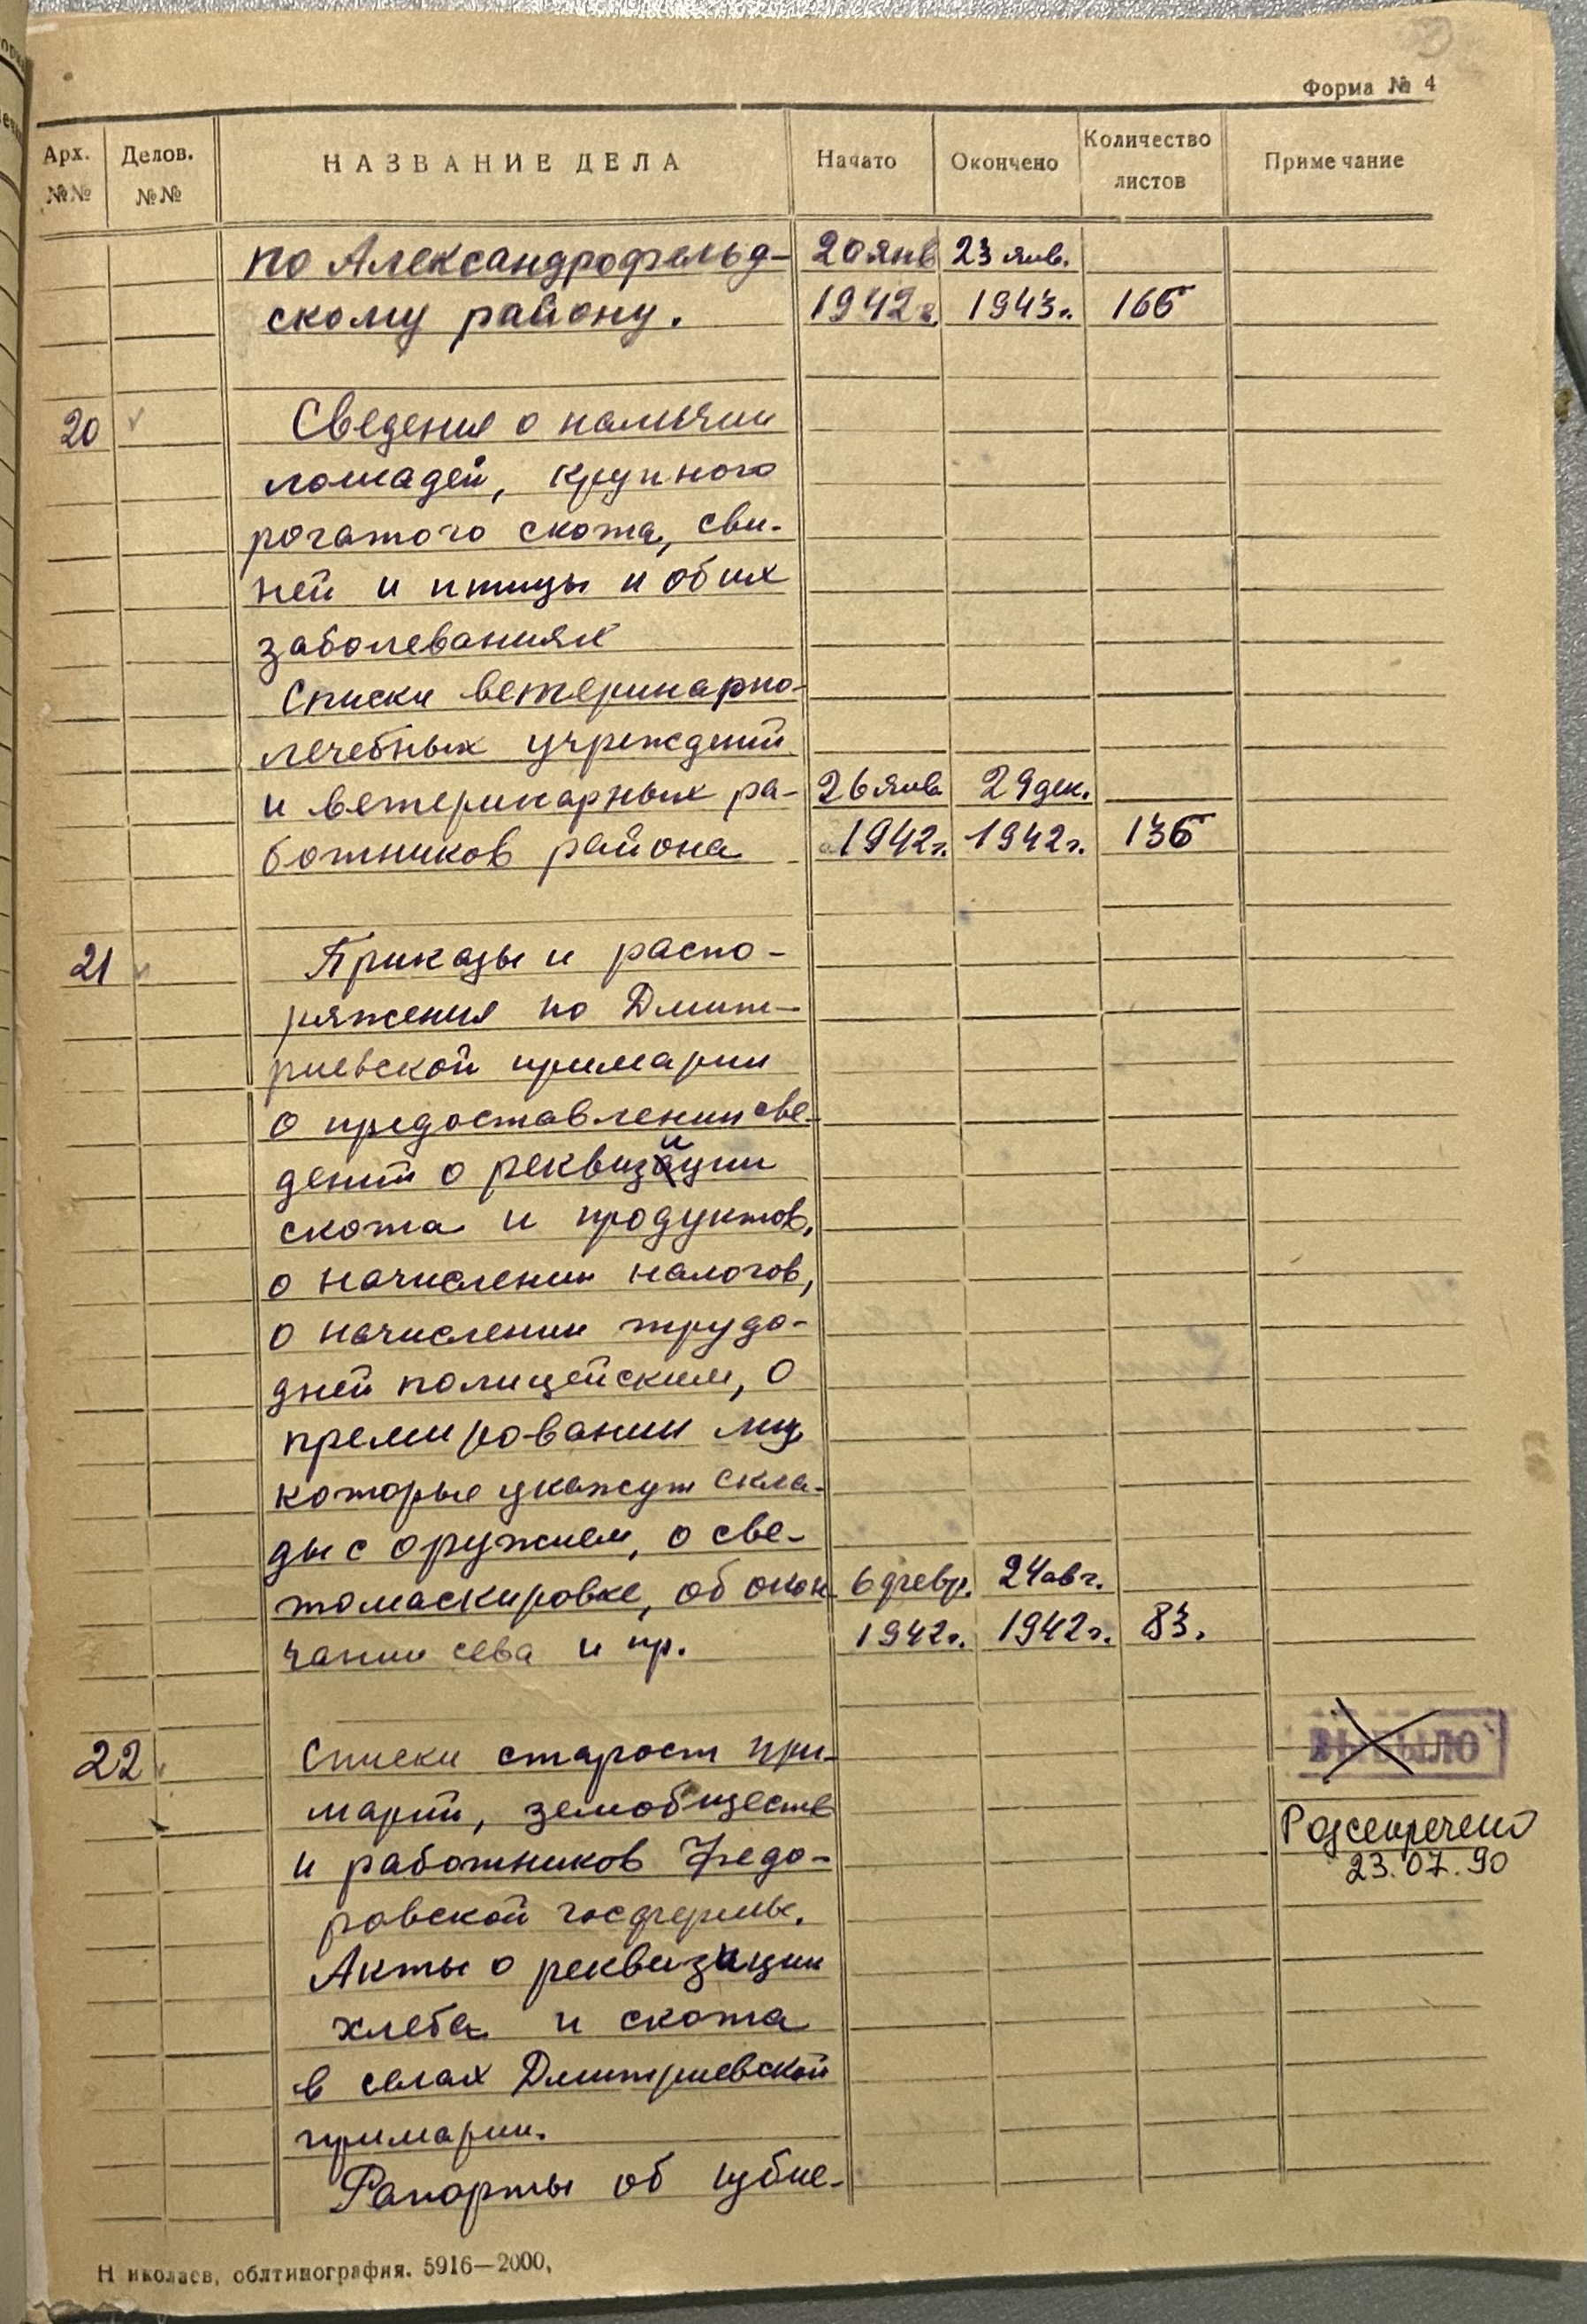 Форма № 4
Арх. №№ Делов. №№ НАЗВАНИЕ ДЕЛА Начато Окончено Количество листов Примечание
по Александрофельд- 20 янв 23 янв.
скому району. 1942 г. 1943 г. 165
20 Сведения о наличии
лошадей, крупного
рогатого скота, сви-
ней и птицы и об их
заболеваниях
Списки ветеринарно-
лечебных учреждений
и ветеринарных ра- 26 янв 29 дек.
ботников района 1942 г. 1942 г. 135
21 Приказы и распо-
ряжения по Дмит-
риевской примарии
о предоставлении све-
дений о реквизиции
скота и продуктов,
о начислении налогов,
о начислении трудо-
дней полицейским, о
премировании лиц,
которые укажут скла-
ды с оружием, о све-
томаскировке, об окон- 6 февр. 24 авг.
чании сева и пр. 1942 г. 1942 г. 83.
22 Списки старост при- ВЫБЫЛО
марий, земобществ Рассекречено
и работников Федо- 23.07.90
ровской госфермы.
Акты о реквизиции
хлеба и скота
в селах Дмитриевской
примарии.
Рапорты об
Николаев, облтипография. 5916—2000,